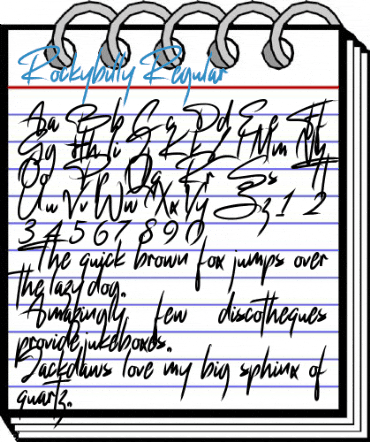 Rockybilly Regular
Aa Bb Cc Dd Ee Ff
Gg Hh Ii Jj Kk Ll Mm Nn
Oo Pp Qq Rr Ss Tt
Uu Vv Ww Xx Yy Zz 1 2
3 4 5 6 7 8 9 0
The quick brown fox jumps over
the lazy dog.
Amazingly few discotheques
provide jukeboxes.
Jackdaws love my big sphinx of
quartz.